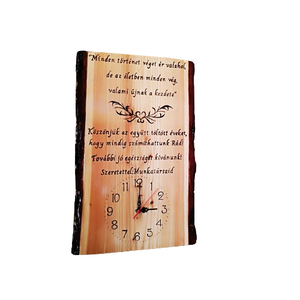 "Minden történet véget ér valahol,
de az életben minden vég,
valami újnak a kezdete"
Köszönjük az együtt töltött éveket,
hogy mindig számíthattunk Rád!
További jó egészséget kívánunk!
Szeretettel:Munkatársaid